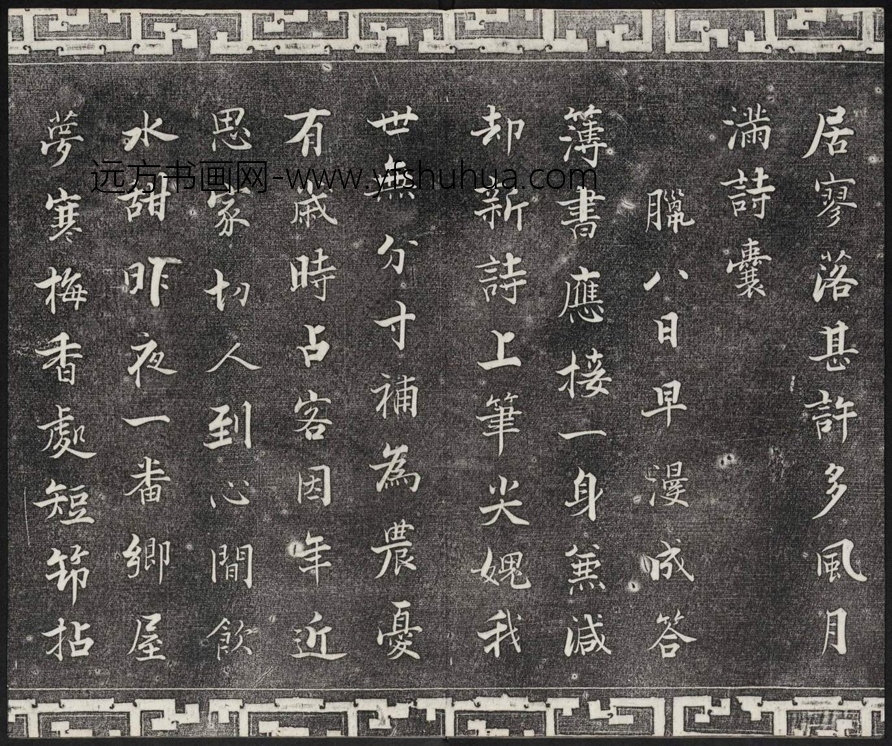 居寥落甚許多風月
滿詩囊
臘八日早漫成答
簿書應接一身兼減
却新詩上筆尖媿我
世無分寸補為農憂
有歲時占客因年近
思家切人到心閒飲
水甜昨夜一番鄉屋
夢寒梅香處短筇拈
远方书画网-www.yfshuhua.com